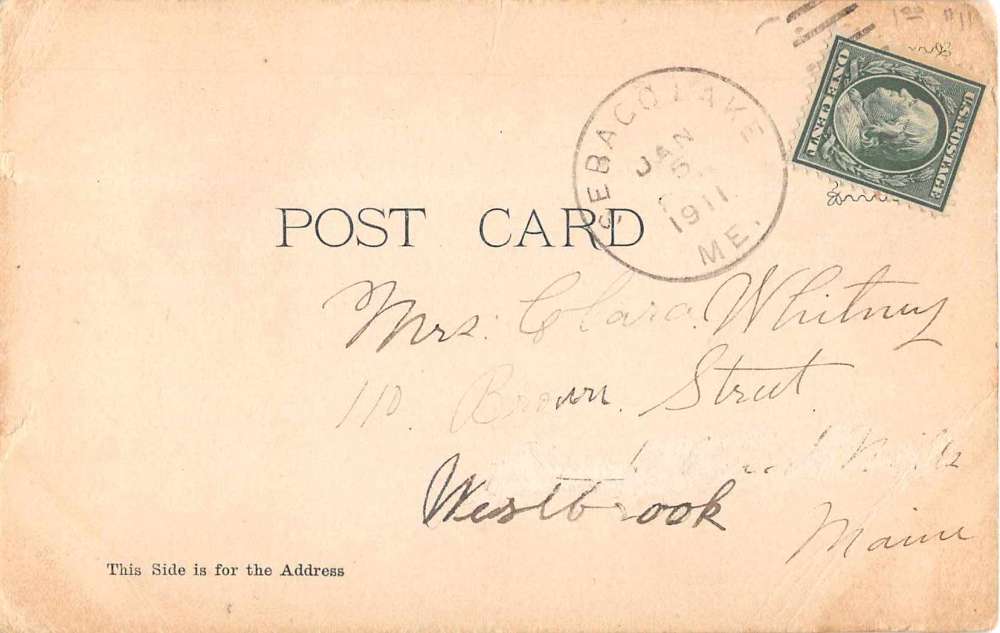 SEBAGO LAKE
JAN
5
1911
ME.
U.S. POSTAGE
ONE CENT
POST CARD
Mrs. Clara Whitney
110 Brown Street
Mills
Westbrook
Maine
This Side is for the Address